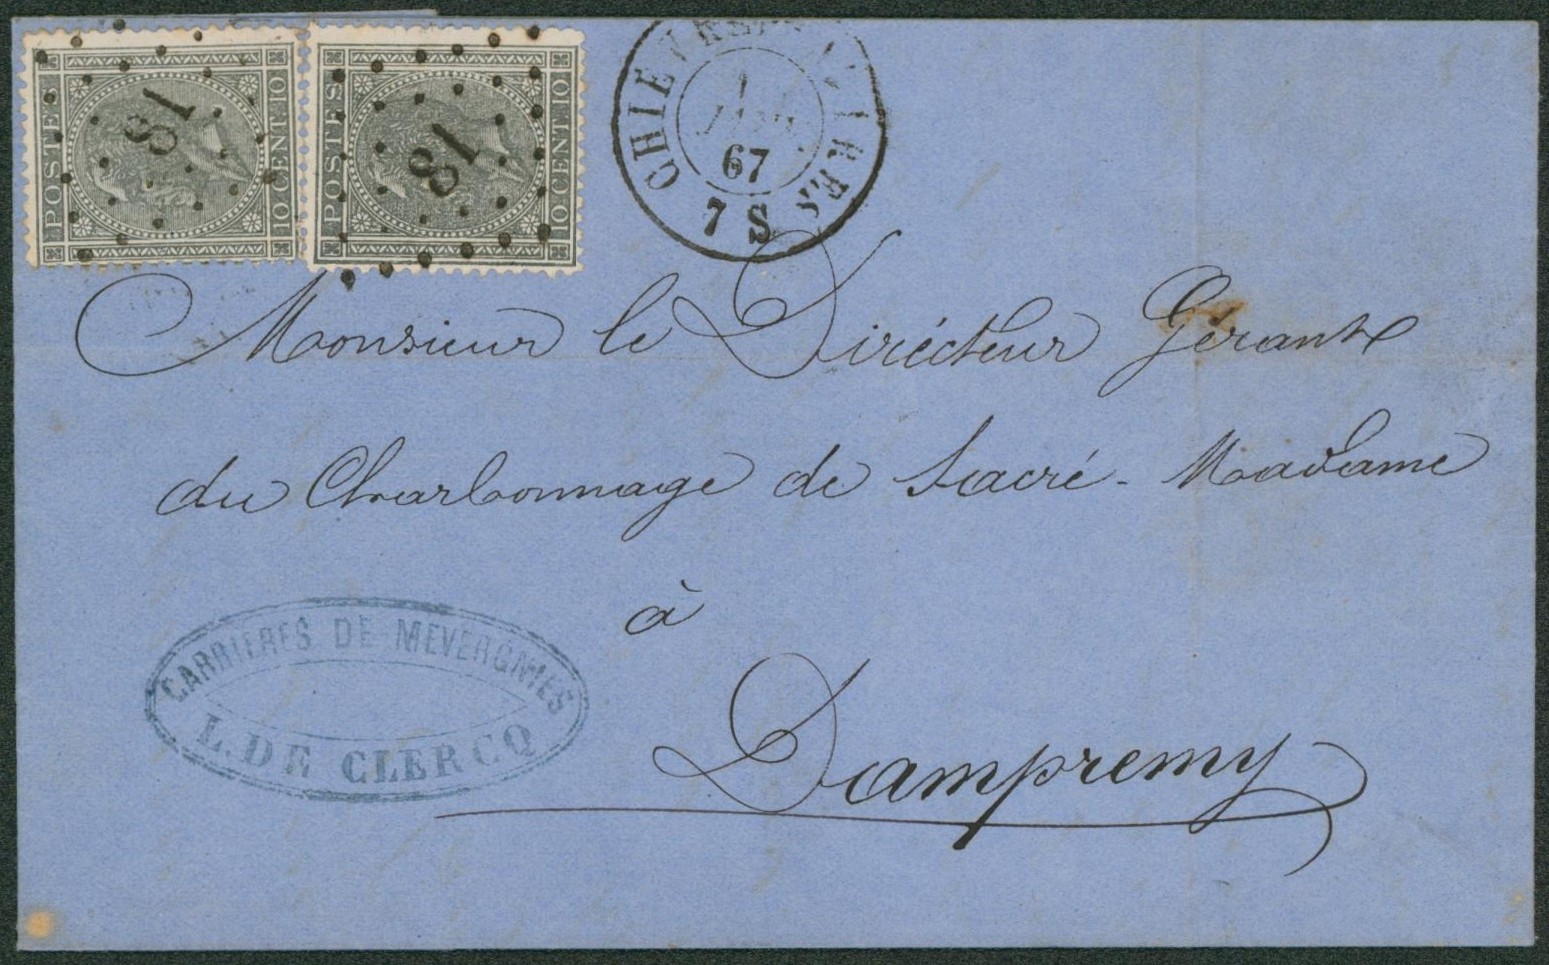 POSTES 10 CENT 10
81
POSTES 10 CENT 10
81
67
7 S
Monsieur le Dirécteur Gérant
du Charbonnage de Sacré-Madame
à
Dampremy
CARRIÈRES DE MEVERGNIES
L. DE CLERCQ